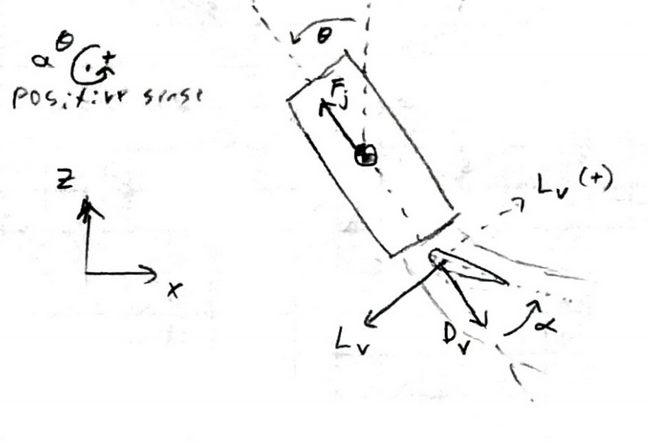 θ
α θ +
positive sense
F_j
Z
L_v (+)
x
L_v D_v α